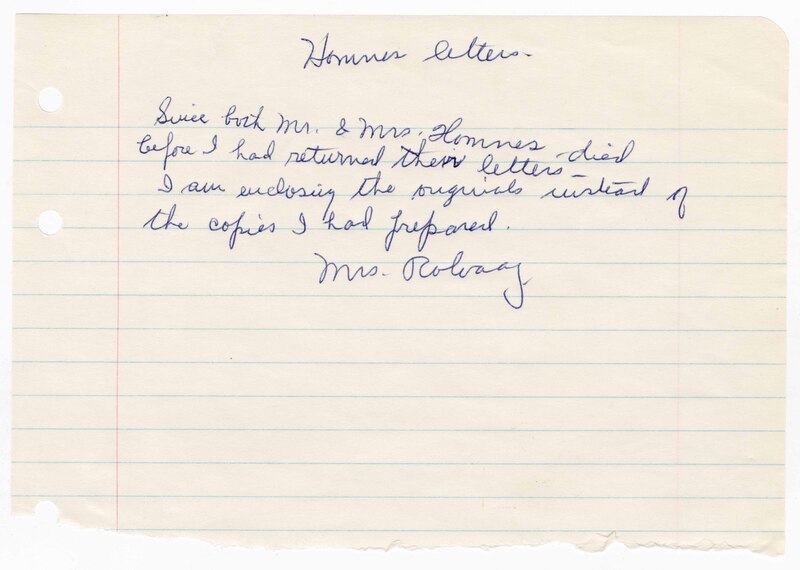 Homnes letters.
Since both Mr. & Mrs. Homnes died
before I had returned their letters –
I am enclosing the originals instead of
the copies I had prepared.
Mrs. Rolvaag